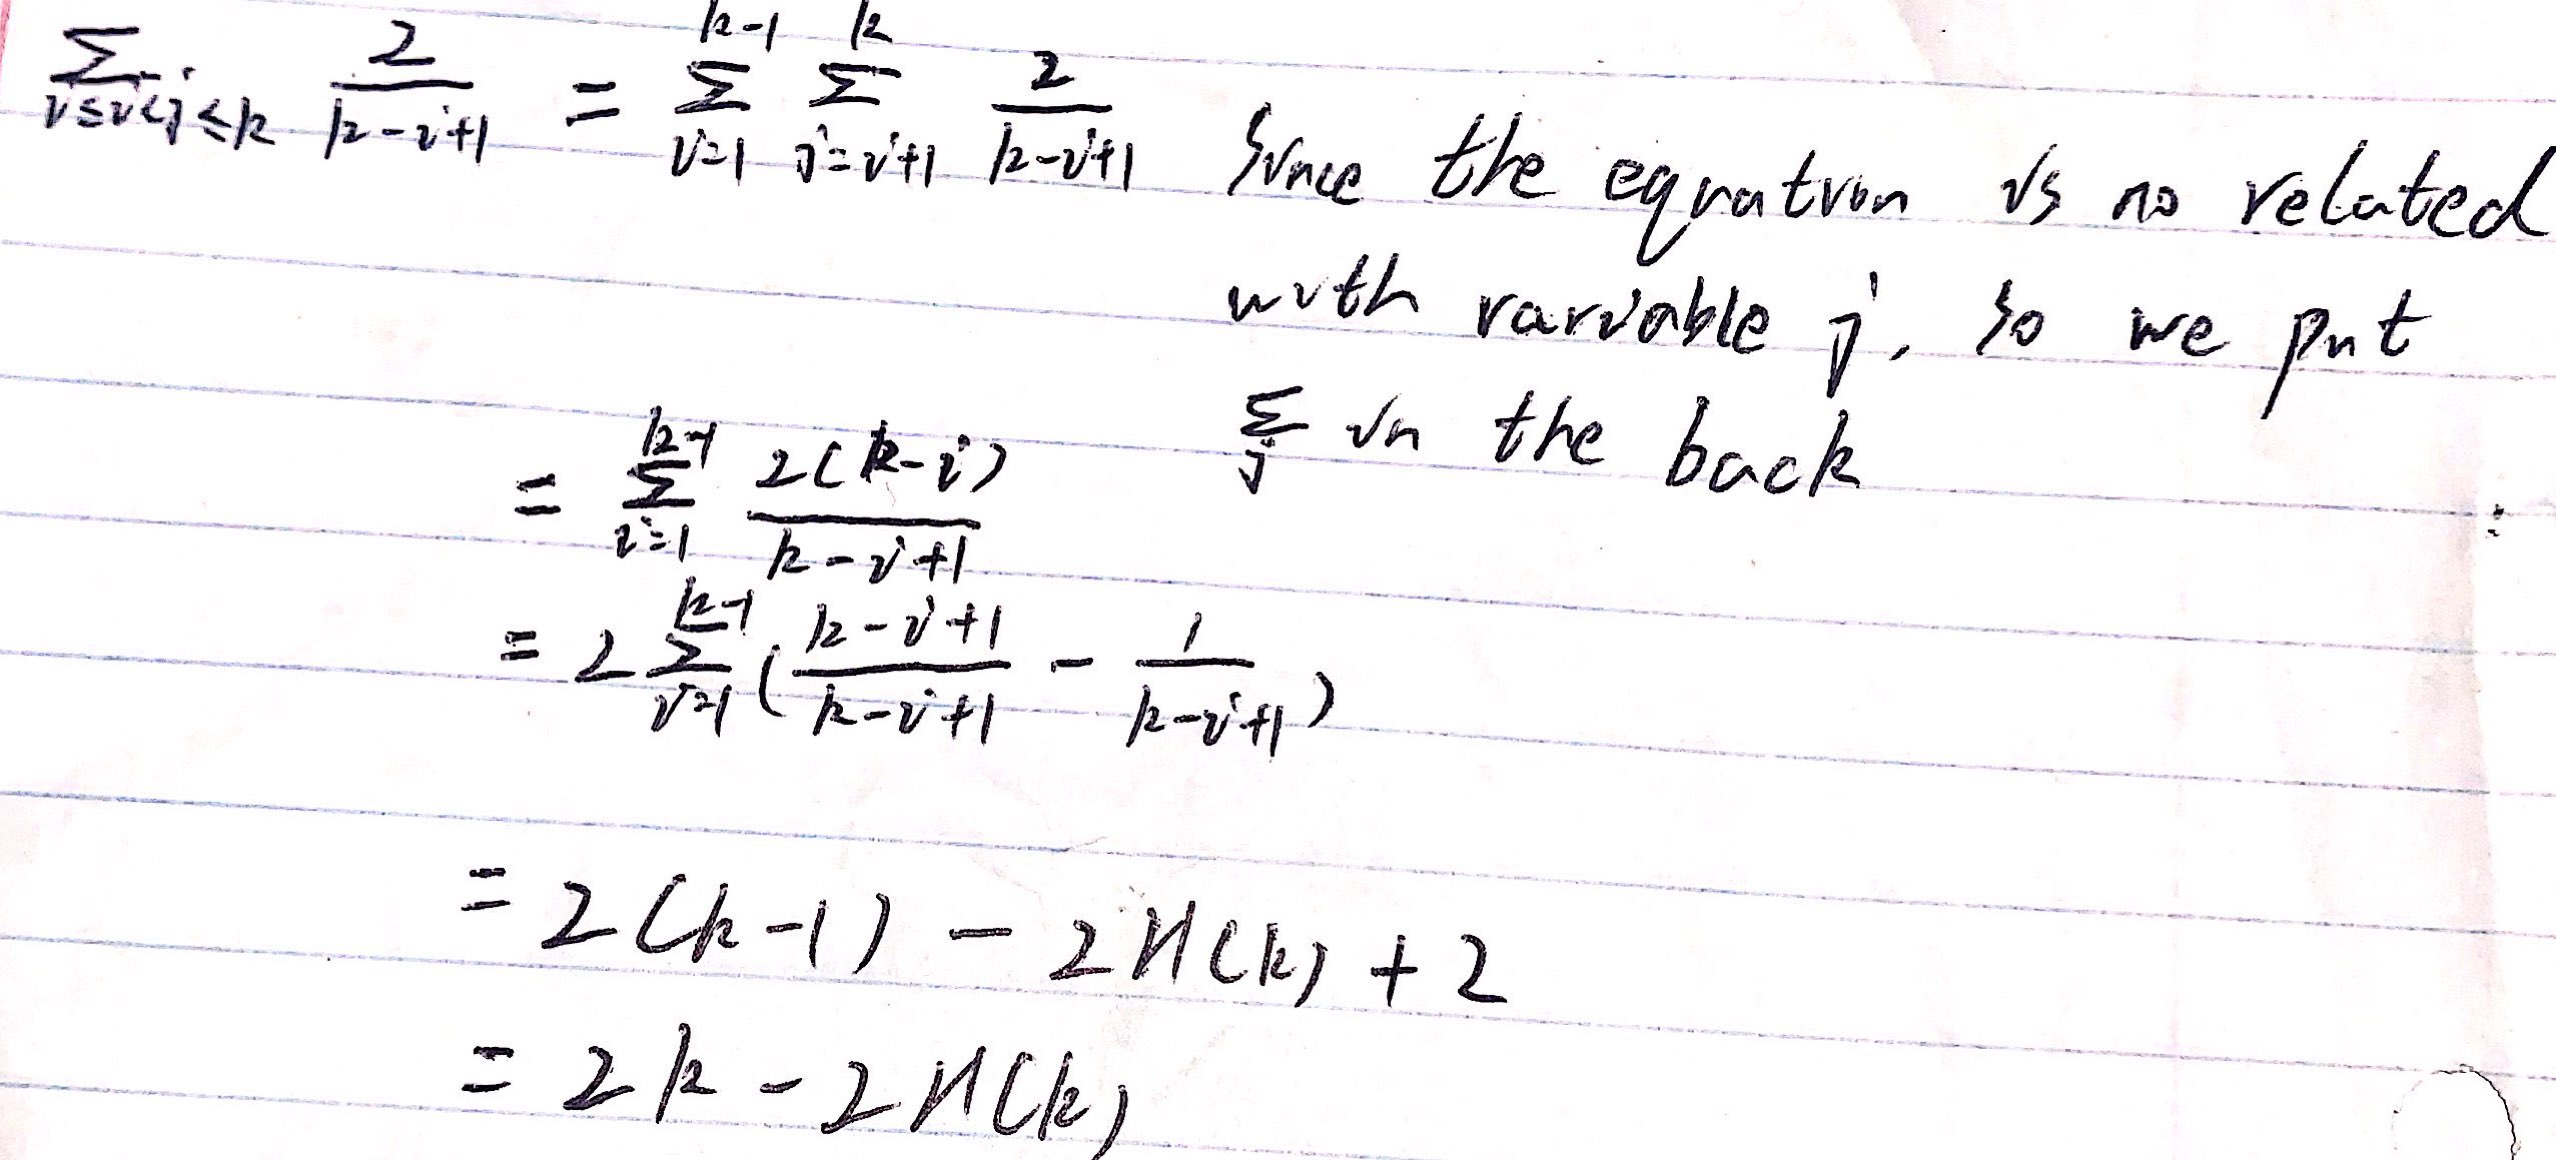 ∑_{i≤i<j≤k} 2/(k-i+1) = ∑_{i=1}^{k-1} ∑_{j=i+1}^{k} 2/(k-i+1) Since the equation is no related
with variable j, so we put
∑_j in the back
= ∑_{i=1}^{k-1} 2(k-i)/(k-i+1)
= 2∑_{i=1}^{k-1} ((k-i+1)/(k-i+1) - 1/(k-i+1))
= 2(k-1) - 2H(k) + 2
= 2k - 2H(k)